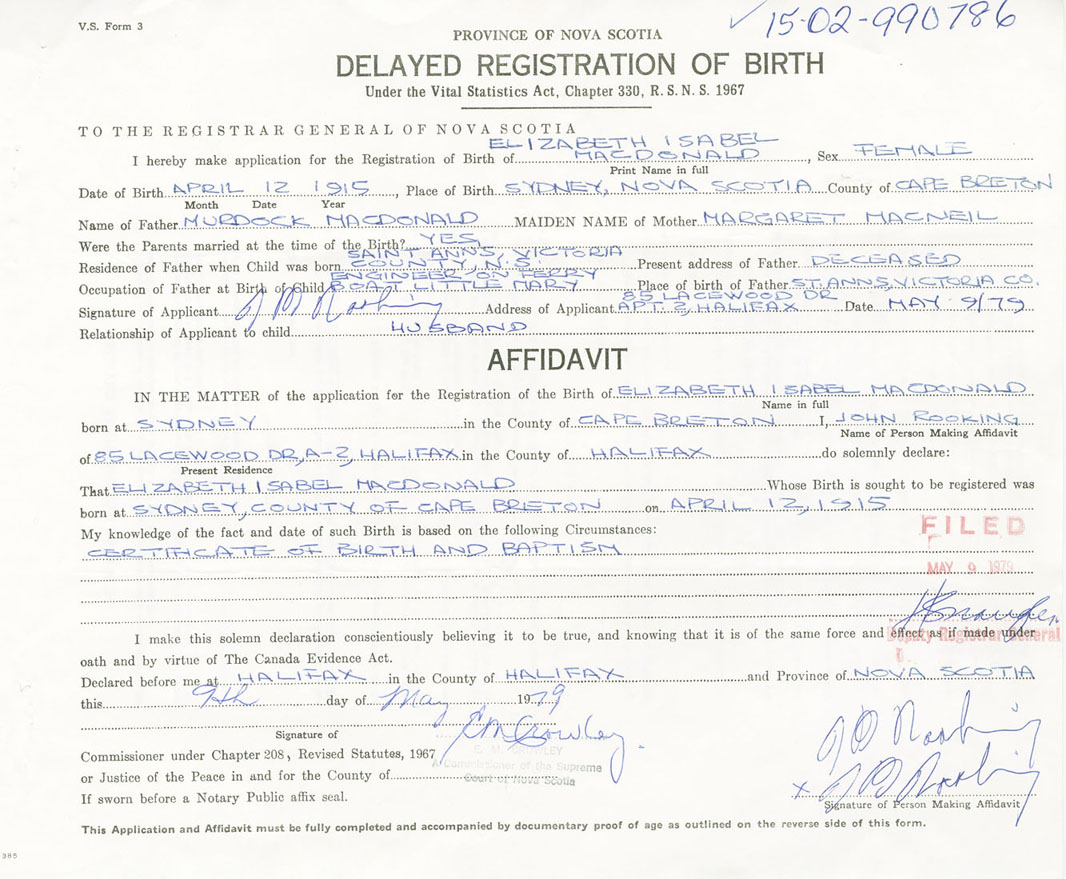 V.S. Form 3
✓ 15-02-990786
PROVINCE OF NOVA SCOTIA
DELAYED REGISTRATION OF BIRTH
Under the Vital Statistics Act, Chapter 330, R.S.N.S. 1967
TO THE REGISTRAR GENERAL OF NOVA SCOTIA
I hereby make application for the Registration of Birth of ELIZABETH ISABEL MACDONALD, Sex FEMALE
Print Name in full
Date of Birth APRIL 12 1915, Place of Birth SYDNEY, NOVA SCOTIA County of CAPE BRETON
Month Date Year
Name of Father MURDOCK MACDONALD MAIDEN NAME of Mother MARGARET MACNEIL
Were the Parents married at the time of the Birth? YES
Residence of Father when Child was born SAINT ANN'S, VICTORIA COUNTY, N.S. Present address of Father DECEASED
Occupation of Father at Birth of Child ENGINEER ON FERRY BOAT LITTLE MARY Place of birth of Father ST. ANNS, VICTORIA CO.
Signature of Applicant J D Rooking Address of Applicant 85 LACEWOOD DR APT. 2, HALIFAX Date MAY 9/79
Relationship of Applicant to child HUSBAND
AFFIDAVIT
IN THE MATTER of the application for the Registration of the Birth of ELIZABETH ISABEL MACDONALD
Name in full
born at SYDNEY in the County of CAPE BRETON I, JOHN ROOKING
Name of Person Making Affidavit
of 85 LACEWOOD DR, A-2, HALIFAX in the County of HALIFAX do solemnly declare:
Present Residence
That ELIZABETH ISABEL MACDONALD Whose Birth is sought to be registered was
born at SYDNEY, COUNTY OF CAPE BRETON on APRIL 12, 1915
My knowledge of the fact and date of such Birth is based on the following Circumstances:
CERTIFICATE OF BIRTH AND BAPTISM
FILED
MAY 9 1979
Deputy Registrar General
I make this solemn declaration conscientiously believing it to be true, and knowing that it is of the same force and effect as if made under
oath and by virtue of The Canada Evidence Act.
Declared before me at HALIFAX in the County of HALIFAX and Province of NOVA SCOTIA
this 9th day of May 1979
E M Crowley
J D Rooking
Signature of
E. M. CROWLEY
A Commissioner of the Supreme
Court of Nova Scotia
Commissioner under Chapter 208, Revised Statutes, 1967
or Justice of the Peace in and for the County of
x J D Rooking
If sworn before a Notary Public affix seal.
Signature of Person Making Affidavit
This Application and Affidavit must be fully completed and accompanied by documentary proof of age as outlined on the reverse side of this form.
385